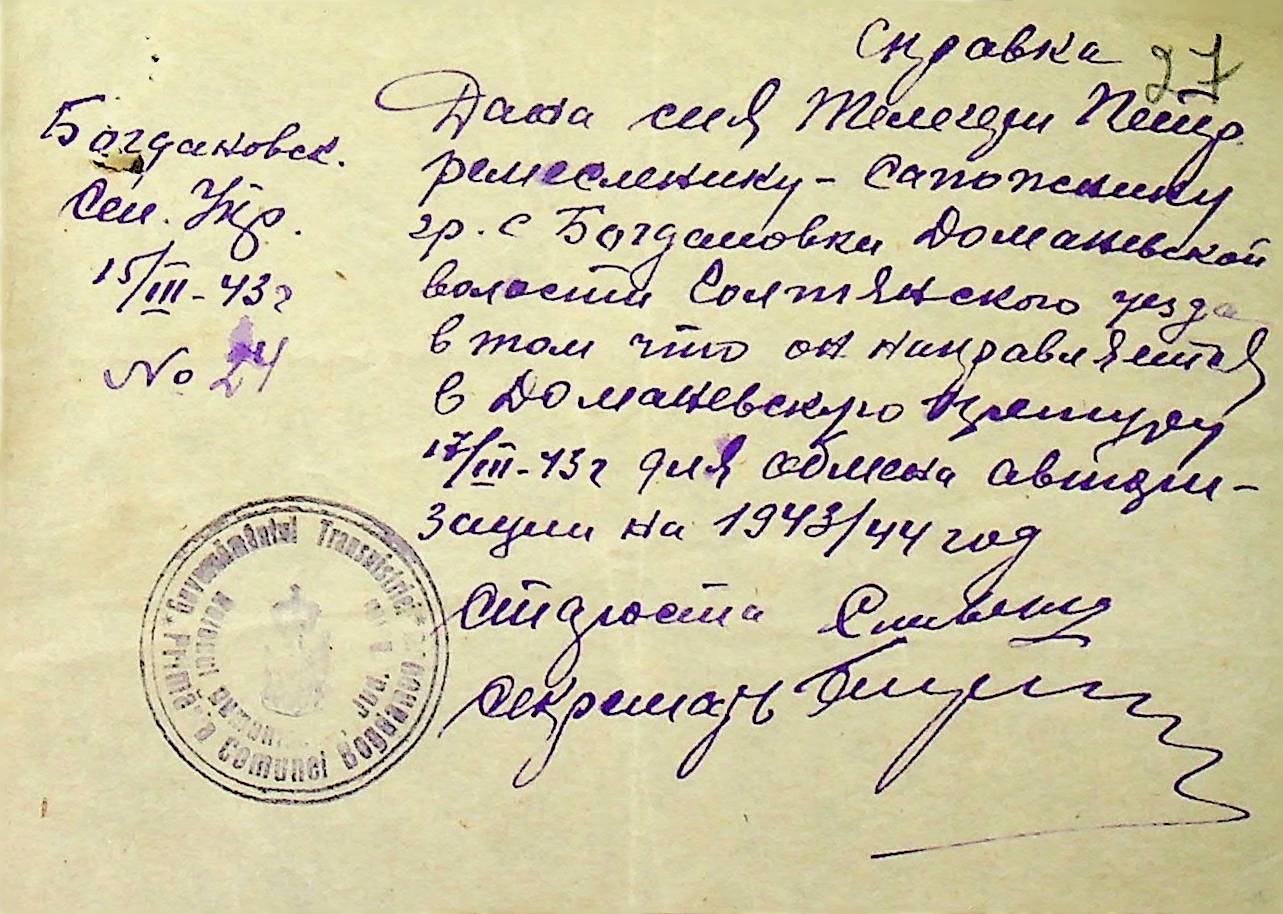 Справка 27
Богдановск.
Сел. Упр.
15/III-43 г
No 24
Дана сия Желегези Петр.
ремесленику - сапожнику
гр. с Богдановки Доманевской
волости Голтянского уезда
в том что он направляется
в Доманевскую претуру
17/III-43 г для обмена автори> 
зации на 1943/44 год
Староста
Секретарь
Guvernământul Transnistriei
Primăria comunei Bogdanov
Jud.